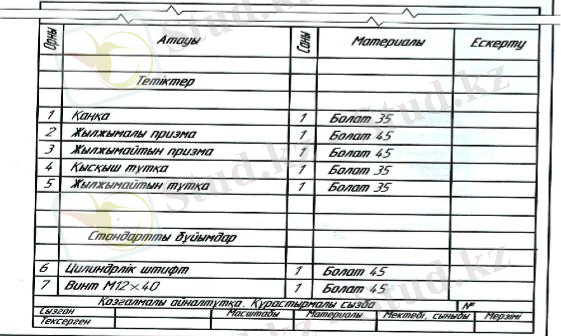 Орны Атауы Саны Материалы Ескерту
Тетіктер
1 Қаңқа 1 Болат 35
2 Жылжымалы призма 1 Болат 45
3 Жылжымайтын призма 1 Болат 45
4 Қысқыш тұтқа 1 Болат 35
5 Жылжымайтын тұтқа 1 Болат 35
Стандартты бұйымдар
6 Цилиндрлік штифт 1 Болат 45
7 Винт М12×40 1 Болат 45
Қозғалмалы айналтұтқа. Құрастырмалы сызба №
Сызған Масштабы Материалы Мектебі, сыныбы Мерзімі
Тексерген
Stud.kz
Stud.kz
Stud.kz
Stud.kz